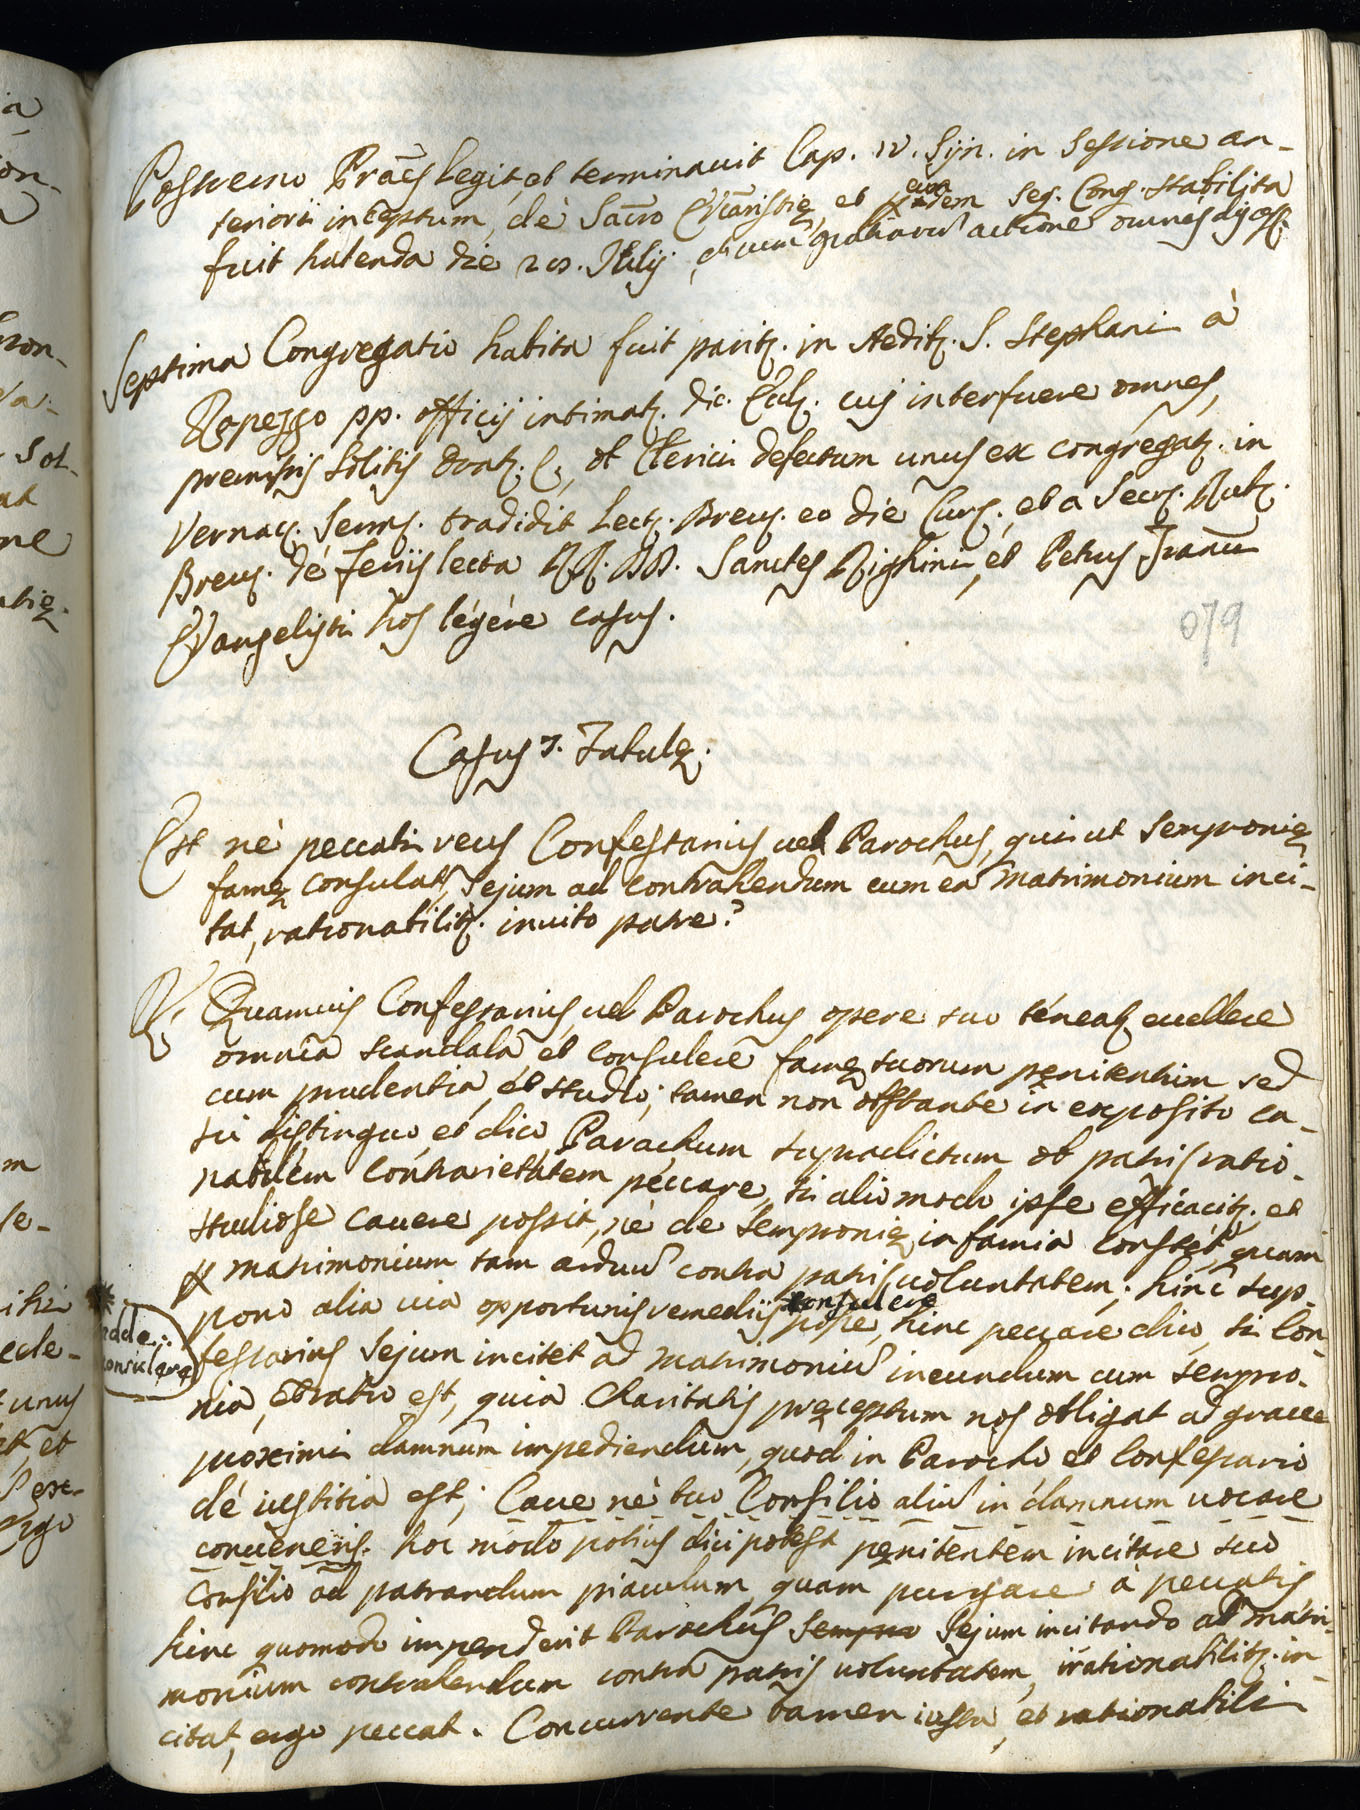 Postremo Præs legit, et terminavit Cap. IV. Syn. in Sessione an-
teriori inceptum, de Sacro Eucaristiæ, et eadem Seq. Cong. stabilita
fuit habenda die 20. Julij, et cum gratiarum actione omnes
Septima Congregatio habita fuit parit. in Aedib. S. Stephani à
Rapezzo pp. officij intimat. dic. Eccl. cui interfuere omnes,
premissis solitis orat. et Clerici defectum unus ex congregat. in
Vernac. Serm. tradidit Lect. Brev. eo die Curs., et a Secr. Rub.
Brev. de Ferijs lecta RR. DD. Sanctes Righini, et Petrus Franc.
Evangelisti hos légére casus.
079
Casus 7. Tabulæ.
Est nè peccati reus Confessarius vel Parochus, qui ut Semproniæ
famæ consulat, Sejum ad contrahendum cum ea matrimonium inci-
tat, rationabilit. invito patre?
R. Quamvis Confessarius, vel Parochus opere suo téneat. evellere
omnia scandala et consulere famæ suorum pænitentium sed
cum prudentia, et studio; tamen non obstante in exposito ca-
su distinguo, et dico, Parochum supradictum ob patris ratio-
nabilem contrarietatem péccare, si alio modo ipse efficacit. et
studiose cavere possit, nè de Semproniæ infamia constet, quam
p matrimonium tam arduum contra patris voluntatem; hinc sup-
pono alia via opportunis remedijs consulere posse, hinc peccare dico, si Con-
adde:
consulere
fessarius Sejum incitet ad matrimonium ineundum cum Sempro-
nia, et ratio est, quia Charitatis præceptum nos obligat ad grave
proximi damnum impediendum, quod in Parocho et Confessario
dé iustitia est; Cave nè tuo Consilio alium in damnum vocare
convéneris. hoc modo potius dici potest pænitentem incitare suo
Consilio ad patrandum piaculum quam purgare à peccatis
hinc quomodo impenderit Parochus Sempro Sejum incitando ad matri-
monium contrahendum contra patris voluntatem, irationabilit. in-
citat, ergo peccat. Concurrente tamen iusta, et rationabili